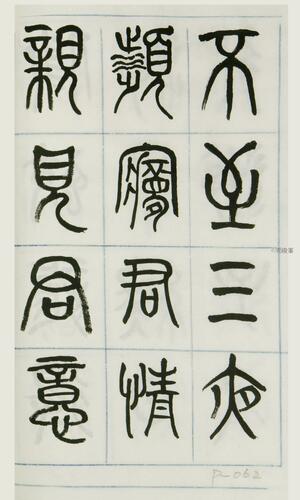 不至三夜
頻夢君情
親見君意
P-062